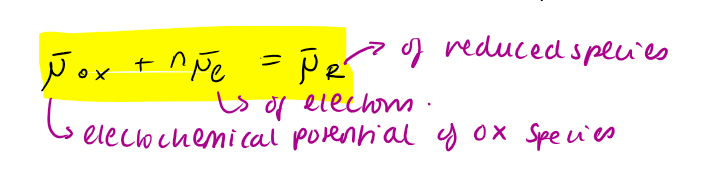 μ̄ox + nμ̄e = μ̄R → of reduced species
↳ of electrons.
↳ electrochemical potential of ox species